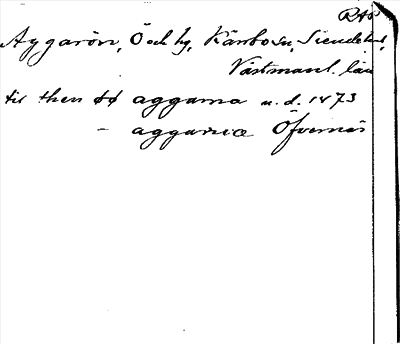 RAP
Aggarön, Ö och by, Kärrbo sn, Siende hd,
Västmanl. län
til then öö aggarna u. d. 1473
– aggarne Öfvernäs